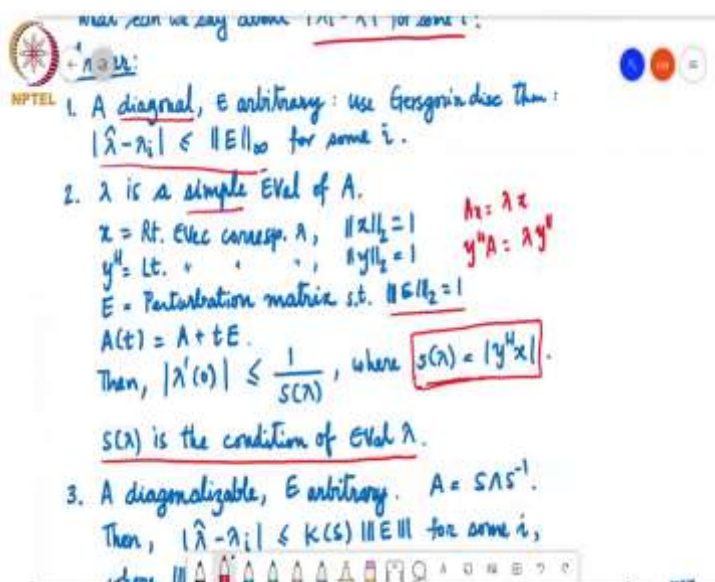 what can we say about |λ̂-λi| for some i?
NPTEL
1. A diagonal, E arbitrary: use Gersgorin disc Thm:
|λ̂-λi| ≤ ‖E‖∞ for some i.
2. λ is a simple EVal of A.
x = Rt. EVec corresp. λ, ‖x‖₂ = 1
Ax = λx
yᴴ = Lt. " " ", ‖y‖₂ = 1
yᴴA = λyᴴ
E = Perturbation matrix s.t. ‖E‖₂ = 1
A(t) = A + tE.
Then, |λ'(0)| ≤ 1/S(λ), where s(λ) = |yᴴx|.
S(λ) is the condition of EVal λ.
3. A diagonalizable, E arbitrary. A = SΛS⁻¹.
Then, |λ̂-λi| ≤ K(S) |||E||| for some i,
where |||